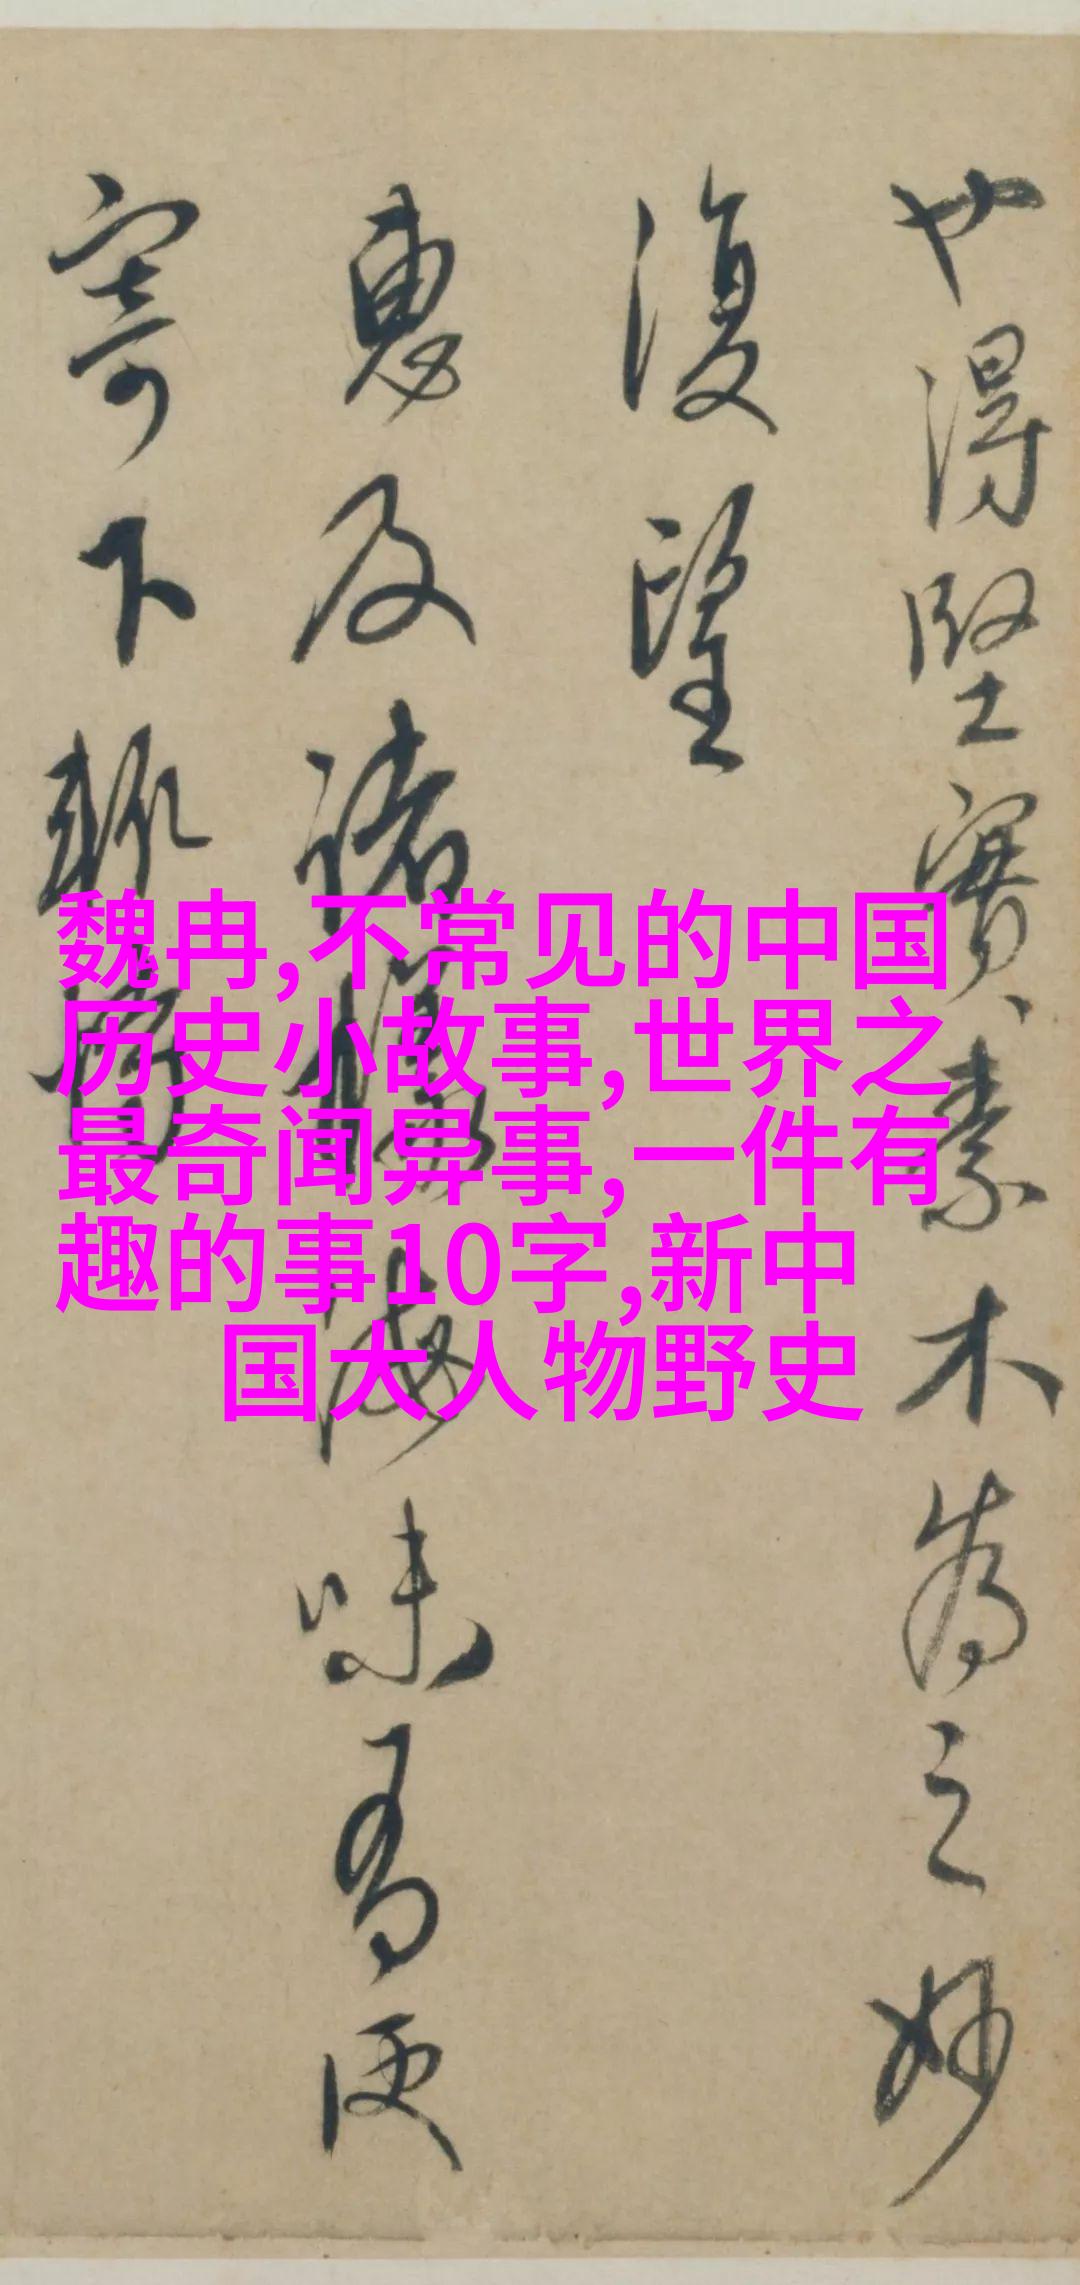 也得堅實素木為之妙
復望
惠及諸
海味為便
寄下輒
魏冉,不常见的中国
历史小故事,世界之
最奇闻异事,一件有
趣的事10字,新中
国大人物野史